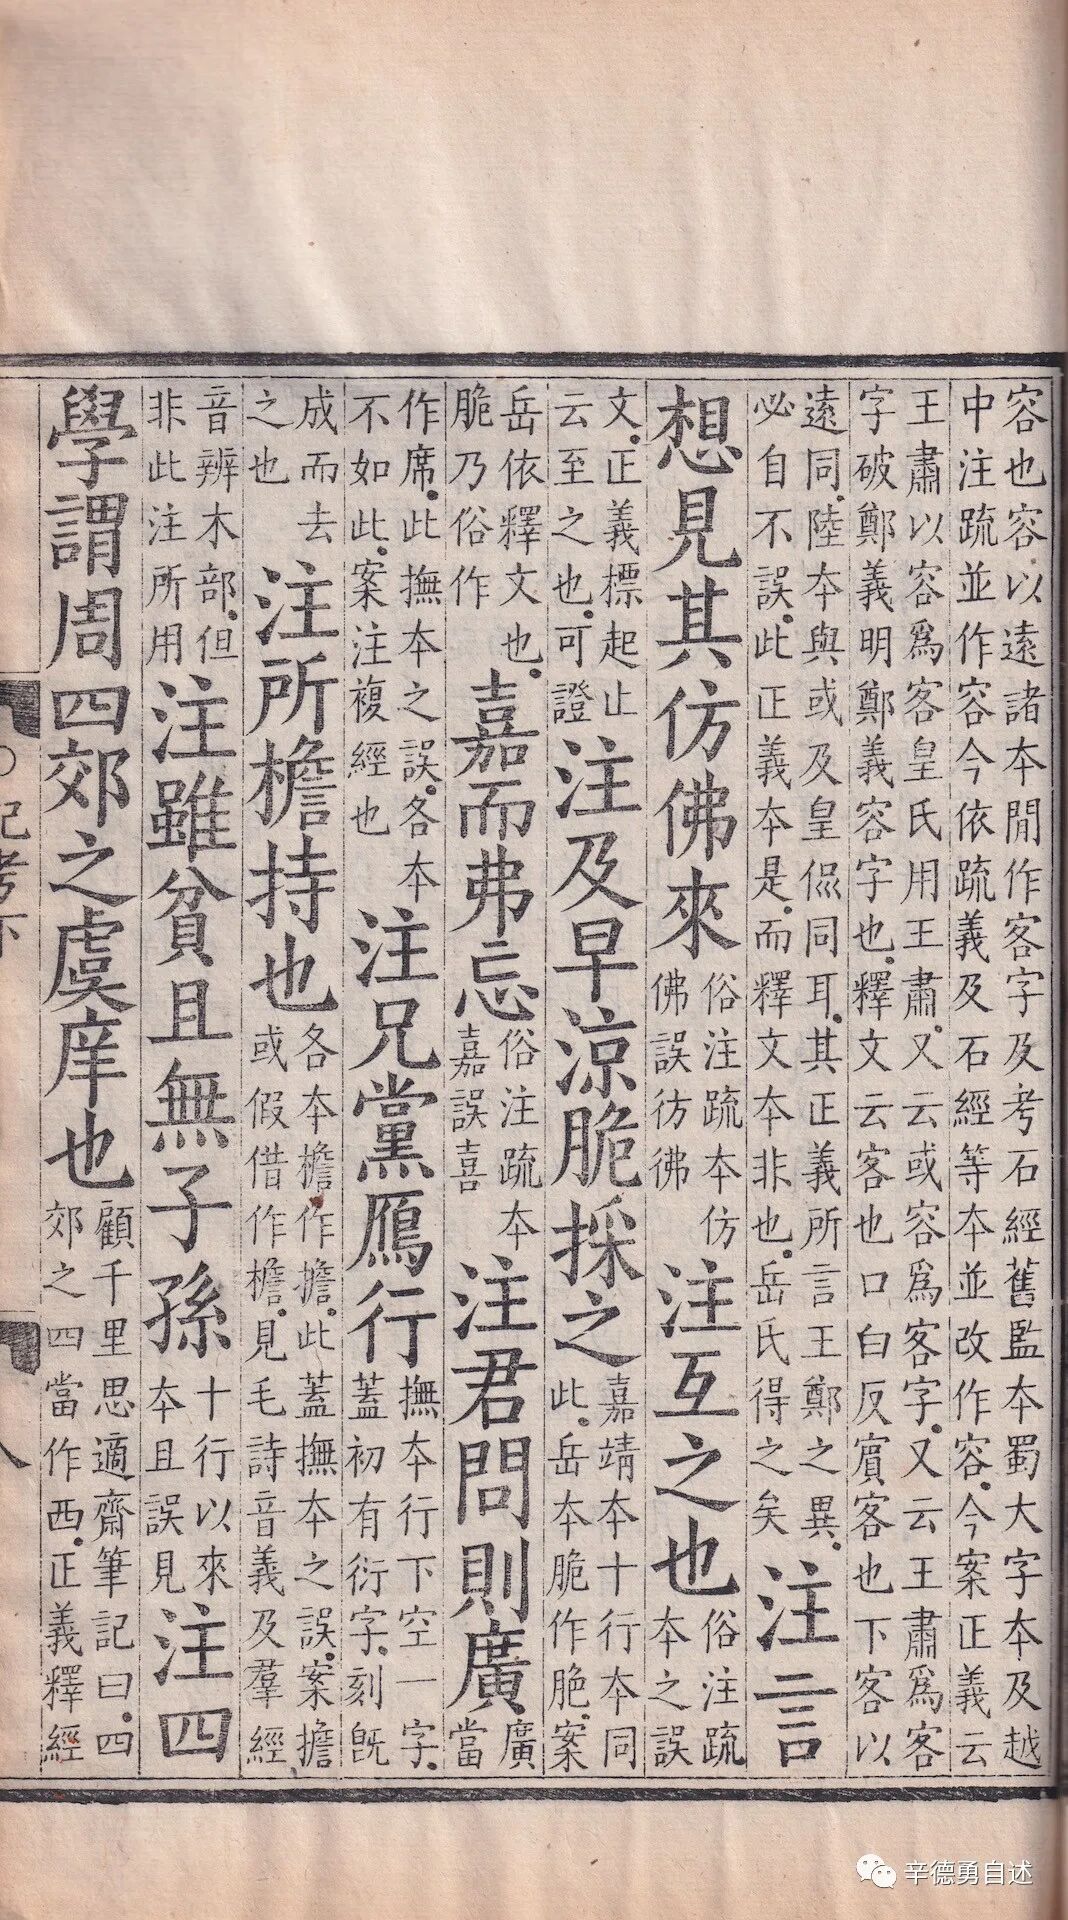 容也容以遠諸本閒作客字及考石經舊監本蜀大字本及越
中注疏並作容今依疏義及石經等本並改作容。今案正義云
王肅以容爲客皇氏用王肅。又云或容爲客字。又云王肅爲客
字破鄭義明鄭義容字也。釋文云客也口白反賓客也下客以
遠同。陸本與或及皇侃同耳。其正義所言王鄭之異。
必自不誤。此正義本是。而釋文本非也。岳氏得之矣
注言
想見其仿佛來
俗注疏本仿
佛誤彷彿
注互之也
俗注疏
本之誤
文。正義標起止
云至之也。可證
注及早涼脆採之
嘉靖本十行本同
此。岳本脆作脃。案
岳依釋文也。
脆乃俗作
嘉而弗忘
俗注疏本
嘉誤喜
注君問則廣
廣
當
作席。此撫本之誤。各本
不如此。案注複經也
注兄黨鴈行
撫本行下空一字。
蓋初有衍字。刻旣
成而去
之也
注所檐持也
各本檐作擔。此蓋撫本之誤。案擔
或假借作檐。見毛詩音義及羣經
音辨木部。但
非此注所用
注雖貧且無子孫
十行以來
本且誤見
注四
學謂周四郊之虞庠也
顧千里思適齋筆記曰。四
郊之四當作西。正義釋經
記考下
八
辛德勇自述